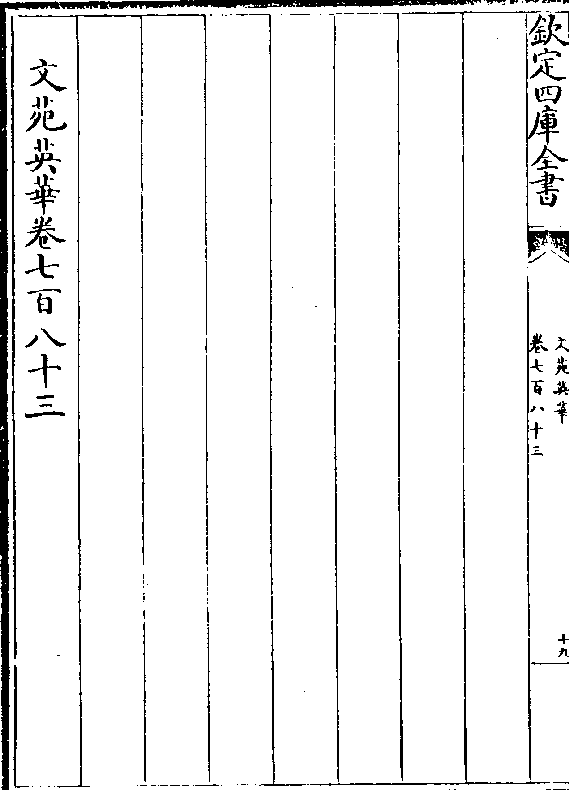 欽定四庫全書
文苑英華
卷七百八十三
十九
文苑英華卷七百八十三